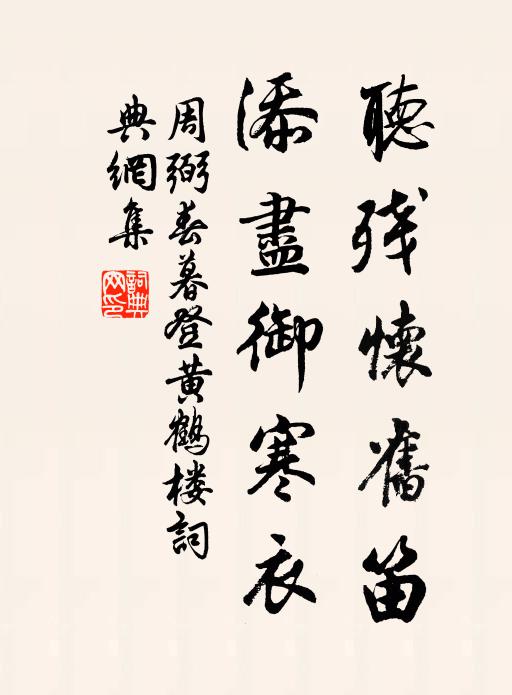 聽残懷舊笛
添盡御寒衣
周弼春暮登黄鶴楼詞
典網集
詞典网印